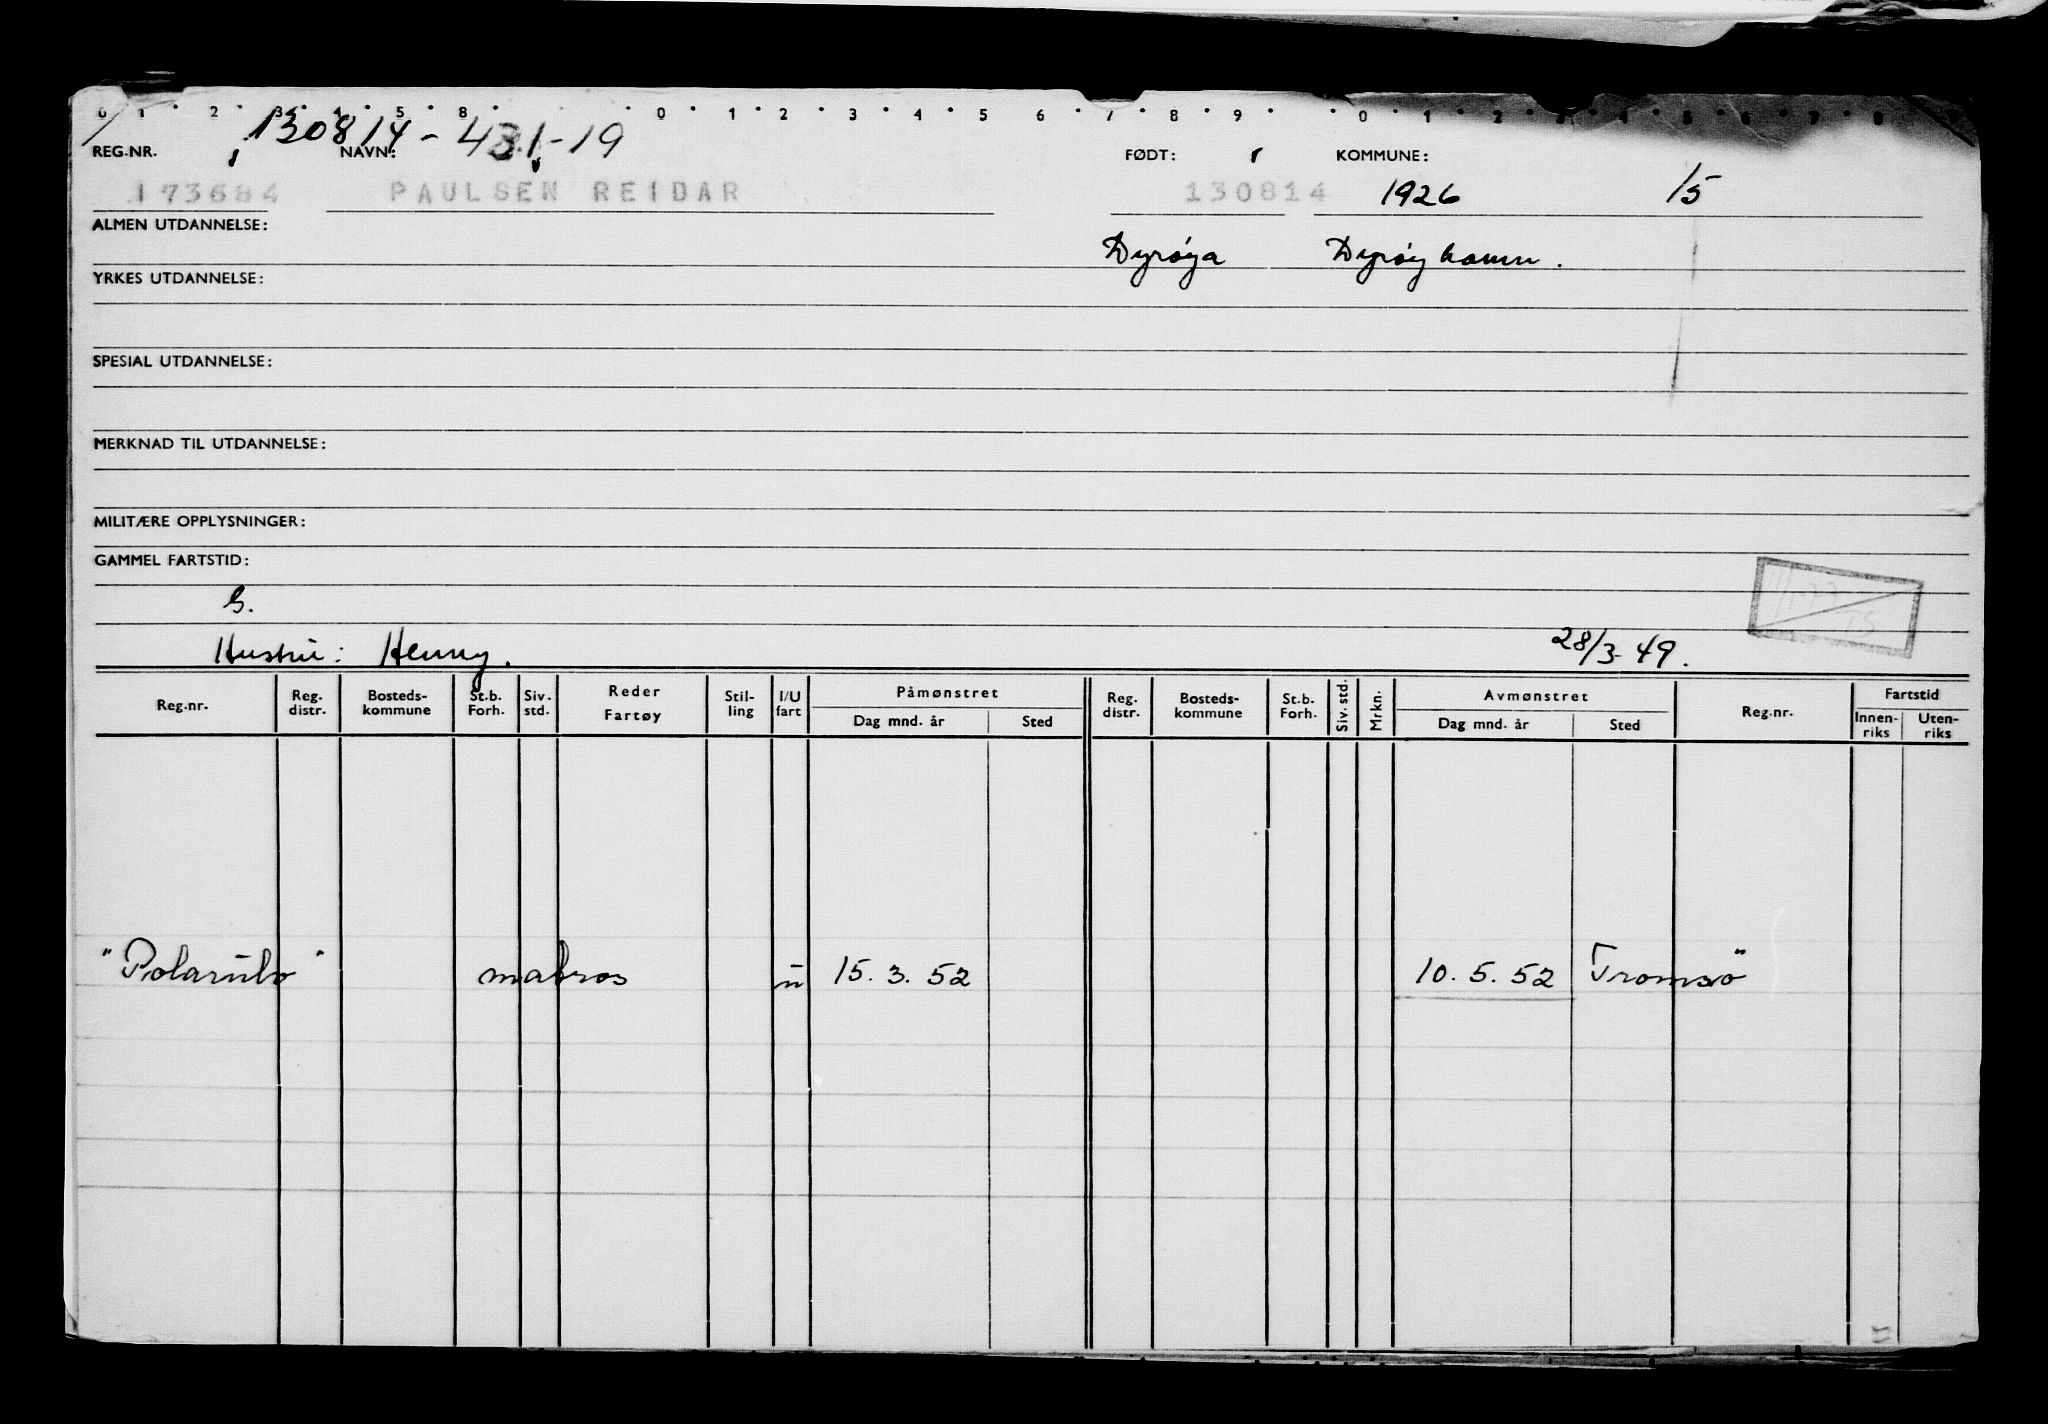 0 1 2 3 4 5 8 0 1 2 3 4 5 6 7 8 9 0 1 2 3 4 5 6 7 8
130814 - 431-19
REG.NR. NAVN: FØDT: KOMMUNE:
173684 PAULSEN REIDAR 130814 1926 15
ALMEN UTDANNELSE:
Dyrøya Dyrøyhamn.
YRKES UTDANNELSE:
SPESIAL UTDANNELSE:
MERKNAD TIL UTDANNELSE:
MILITÆRE OPPLYSNINGER:
GAMMEL FARTSTID:
G.
Hustru: Henny. 28/3-49.
Reg.nr. Reg. distr. Bosteds-kommune St.b. Forh. Siv. std. Reder Fartøy Stil-ling I/U fart Påmønstret Dag mnd. år Sted Reg. distr. Bosteds-kommune St.b. Forh. Siv. std. Mrkn. Avmønstret Dag mnd. år Sted Reg.nr. Fartstid Innen-riks Uten-riks
"Polarulv" matros u 15.3.52 10.5.52 Tromsø